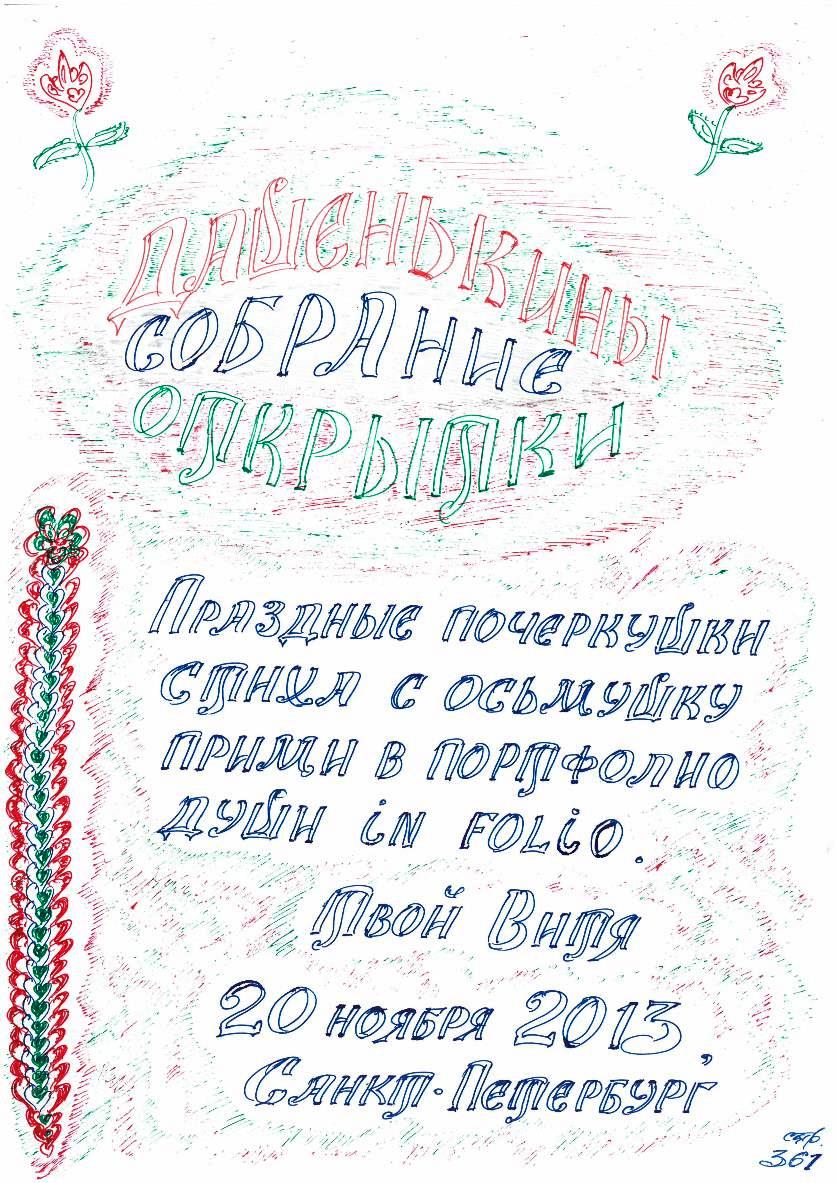 ДАШЕНЬКИНЫ
СОБРАНИЕ
ОТКРЫТКИ
ПРАЗДНЫЕ ПОЧЕРКУШКИ
СТИХА С ОСЬМУШКУ
ПРИМИ В ПОРТФОЛИО
ДУШИ IN FOLIO.
ТВОЙ ВИТЯ
20 НОЯБРЯ 2013,
САНКТ-ПЕТЕРБУРГ
стр.
361